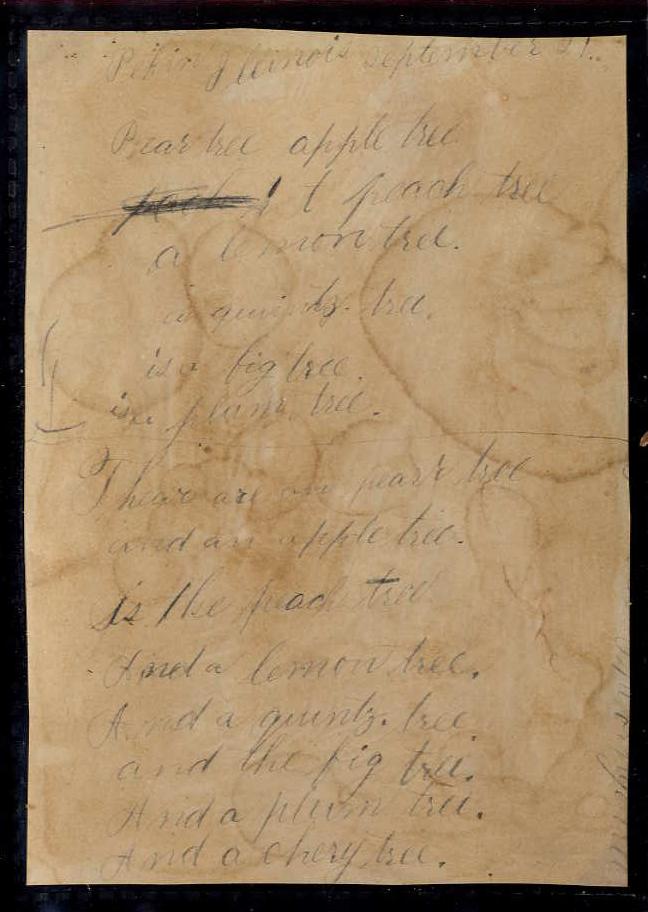 Pekin Illinois September 21.
Pear tree apple tree
peach t peach tree
a lemon tree.
a quintz. tree.
is a fig tree.
is a plum tree.
Thear are an pear tree
and an apple tree.
is the peach tree
And a lemon tree.
And a quintz. tree
and the fig tree.
And a plum tree.
And a chery tree.